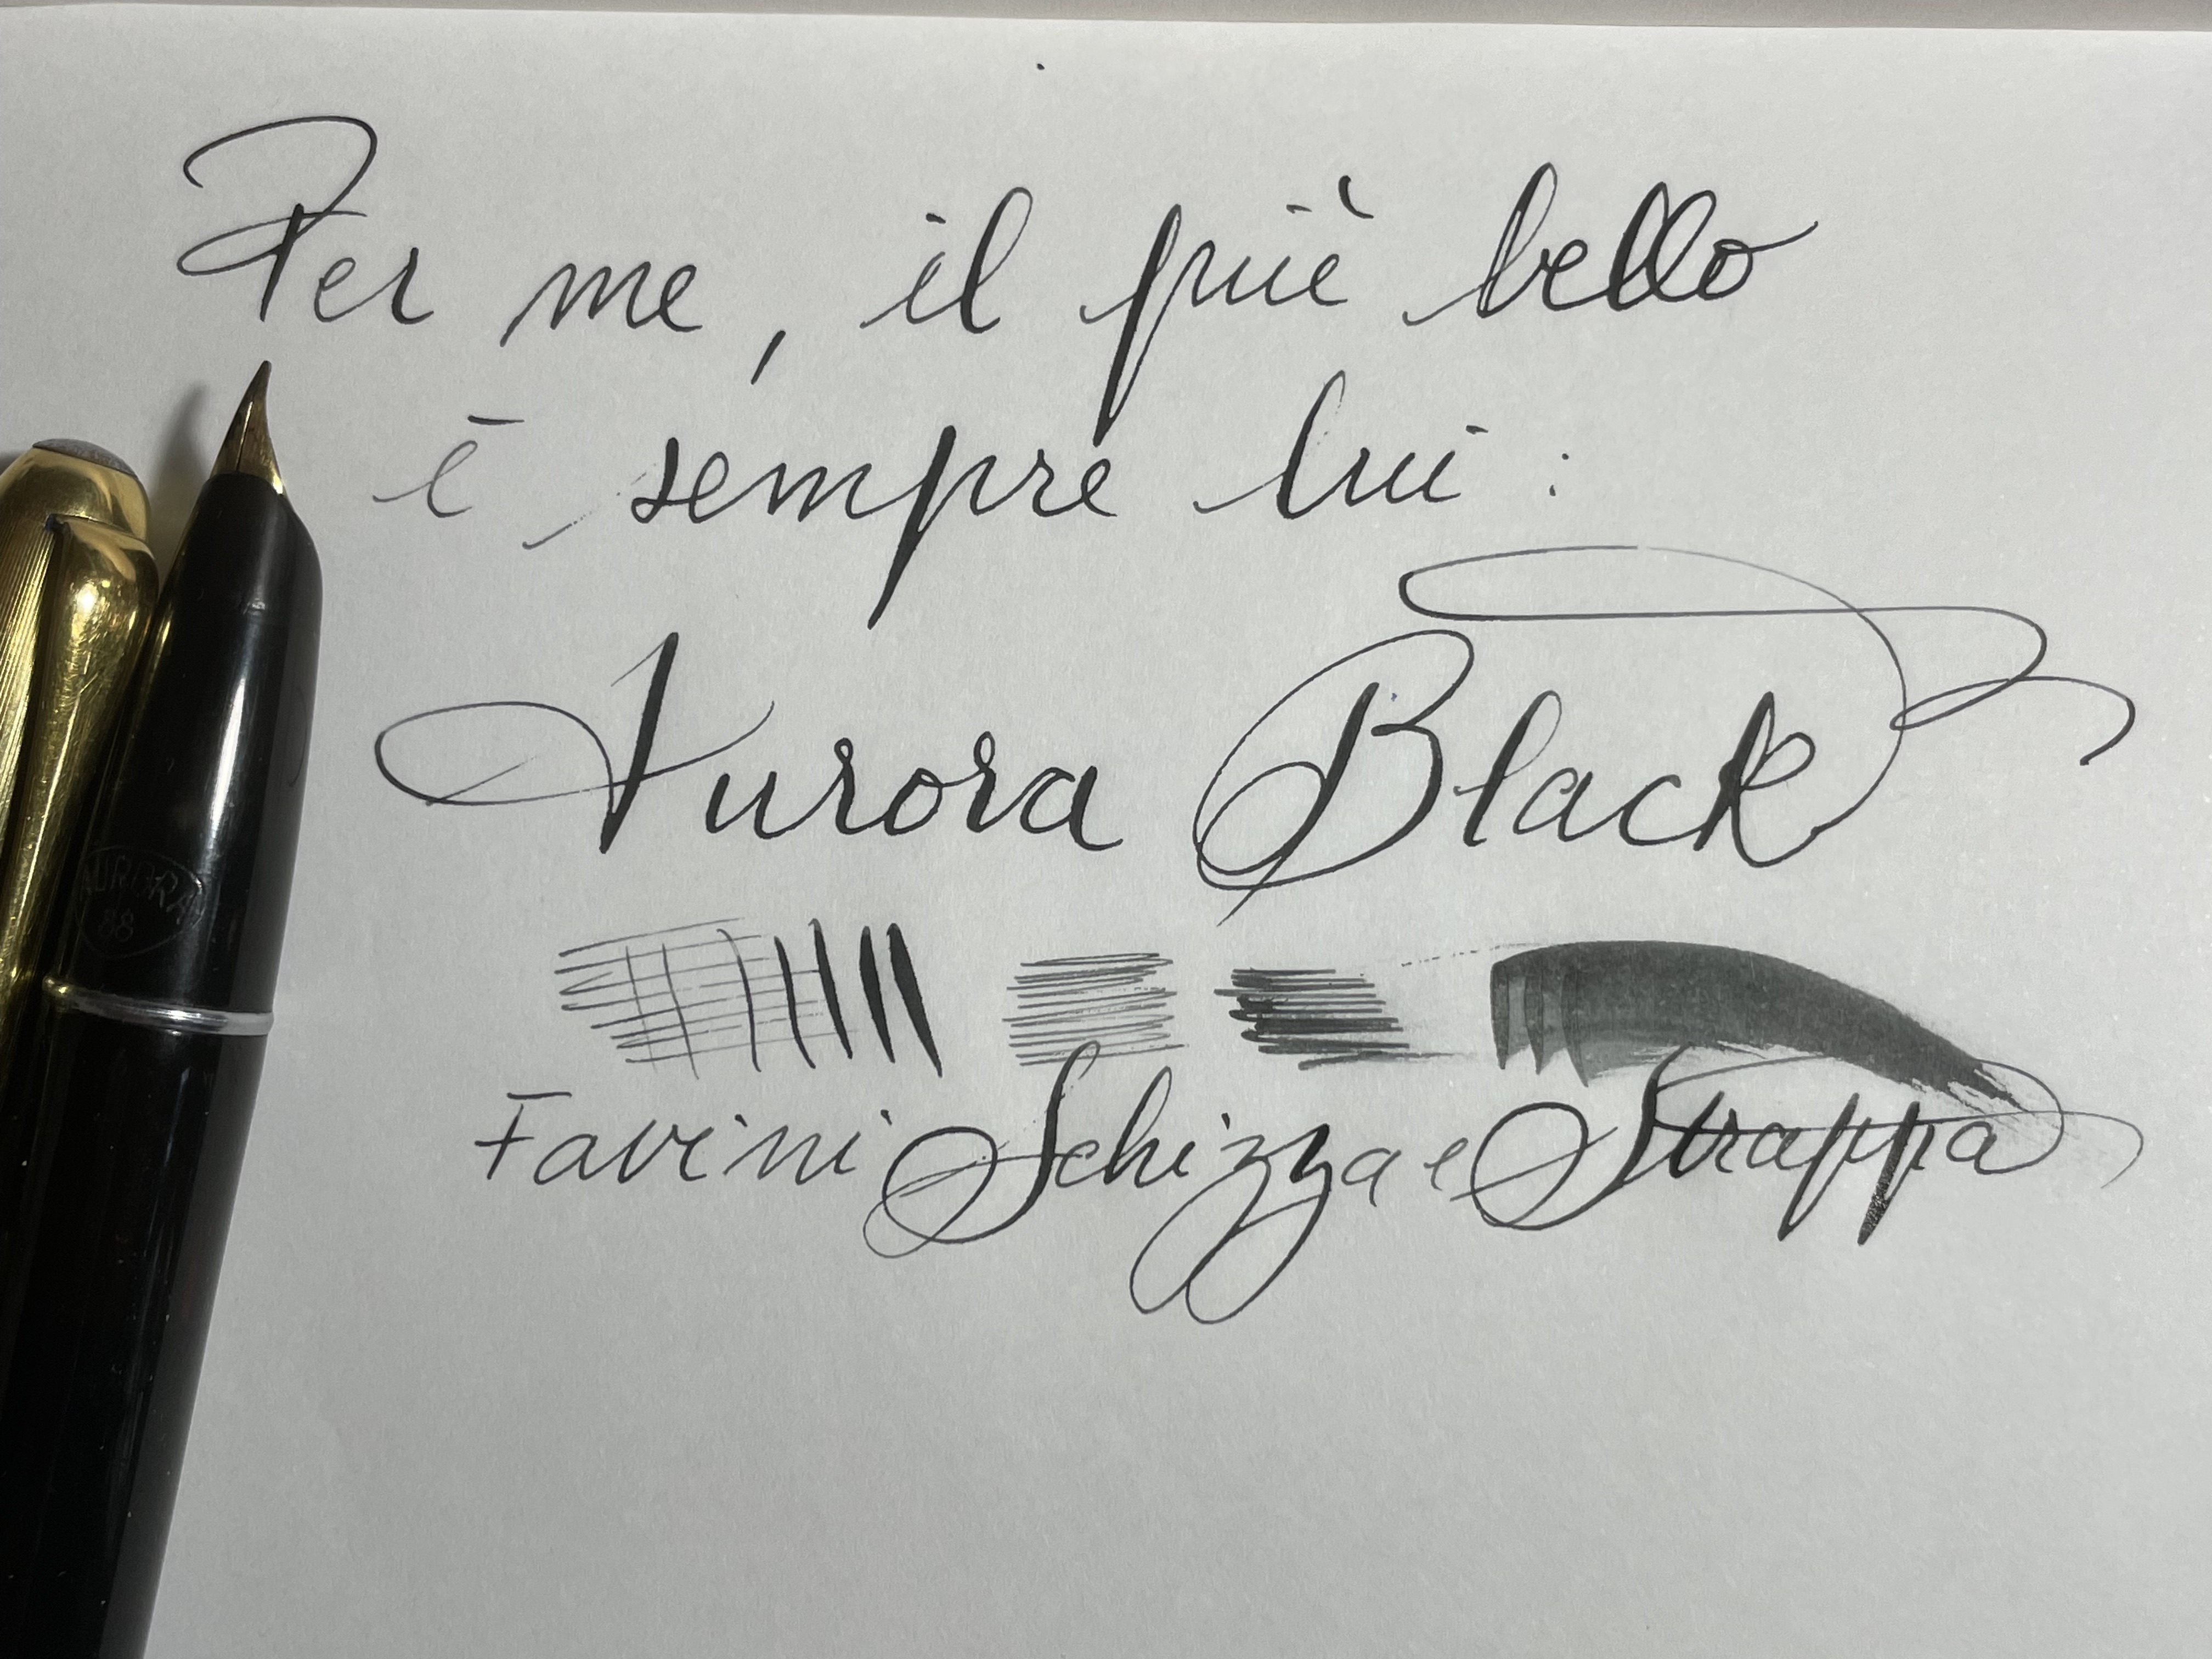 Per me, il puiè bello
è sempre lui :
Aurora Black
Favini Schizza e Strappa
AURORA
88